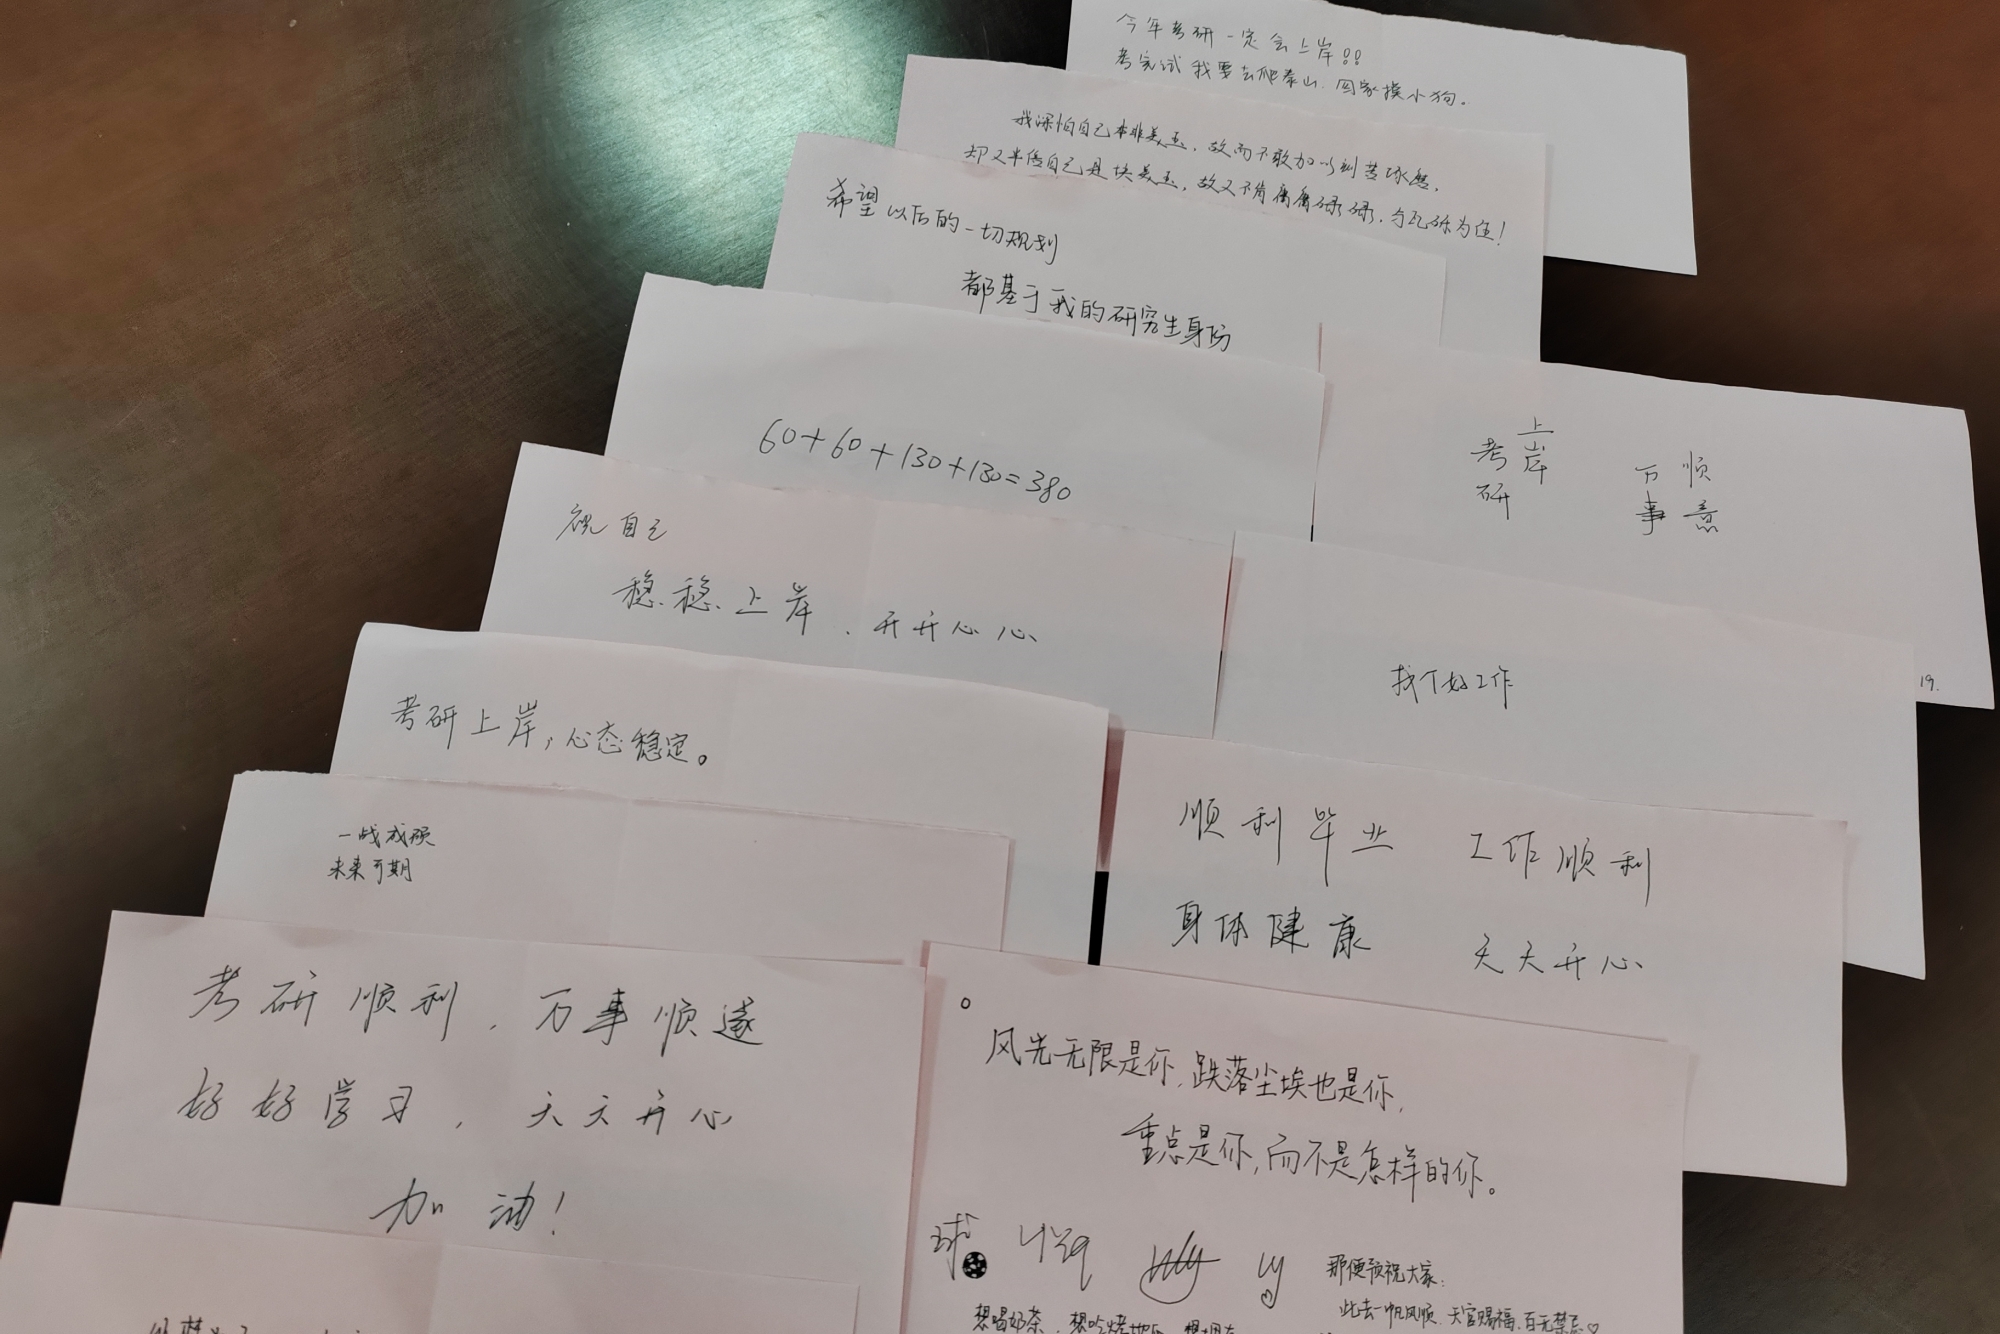 今年考研一定会上岸!!
考完试我要去爬泰山.回家摸小狗。
我深怕自己本非美玉,故而不敢加以刻苦琢磨,
却又半信自己是块美玉,故又不肯庸庸碌碌,与瓦砾为伍!
希望以后的一切规划
都基于我的研究生身份
60+60+130+130=380
上岸
考研
顺意
万事
19.
祝自己
稳稳上岸、开开心心
找个好工作
考研上岸,心态稳定。
一战成硕
未来可期
顺利毕业 工作顺利
身体健康 天天开心
考研顺利,万事顺遂
好好学习,天天开心
加油!
风光无限是你,跌落尘埃也是你,
重点是你,而不是怎样的你。
球
那便预祝大家:
此去一帆风顺.天官赐福、百无禁忌♡
想喝奶茶、想吃烤地瓜